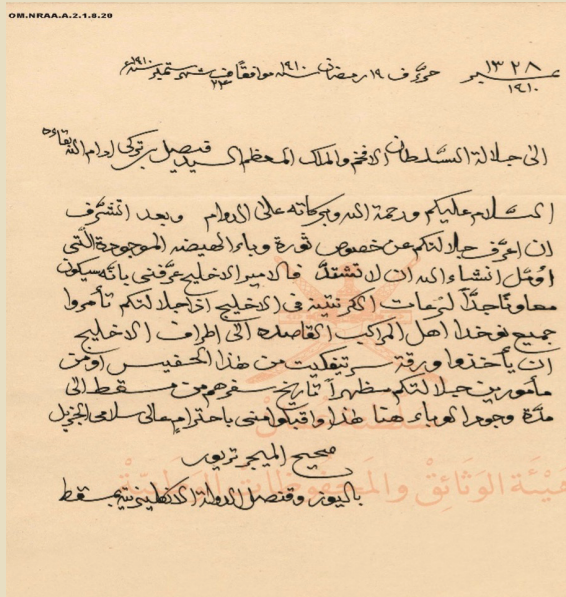 OM.NRAA.A.2.1.8.20
١٣٢٨
١٩١٠
حرر في ١٩ رمضان سنه موافقاً في ٢٤ شهر ستمبر سنه ١٩١٠
الى جلالة السلطان الافخم والملك المعظم السيد فيصل بن تركي ادام الله بقاءه
السلام عليكم ورحمة الله وبركاته على الدوام وبعد اتشرف
ان اعرف جلالتكم عن خصوص ثورة وباء الهيضه الموجودة الّتي
اؤمل انشاء الله ان لا تشتدّ فالامير الاخليج عرّفني بانّه سيكون
معاوناً جدّاً لزمات الكرنتينة في الاخليج اذا جلالتكم تأمروا
جميع نوخدا اهل المراكب القاصده الى اطراف الاخليج
ان يأخذوا ورقة سرتيفكيت من هذا الحفيس او من
مأمورين جلالتكم مظهراً تاريخ سفرهم من مسقط الى
مدّة وجود الوباء هنا هذا واقبلوا منى باحترام عالى سلامى الجزيل
صحيح الميجر تريور
باليوز وقنصل الدولة الانكليزية بمسقط
هيئة الوثائق والمحفوظات الوطنية